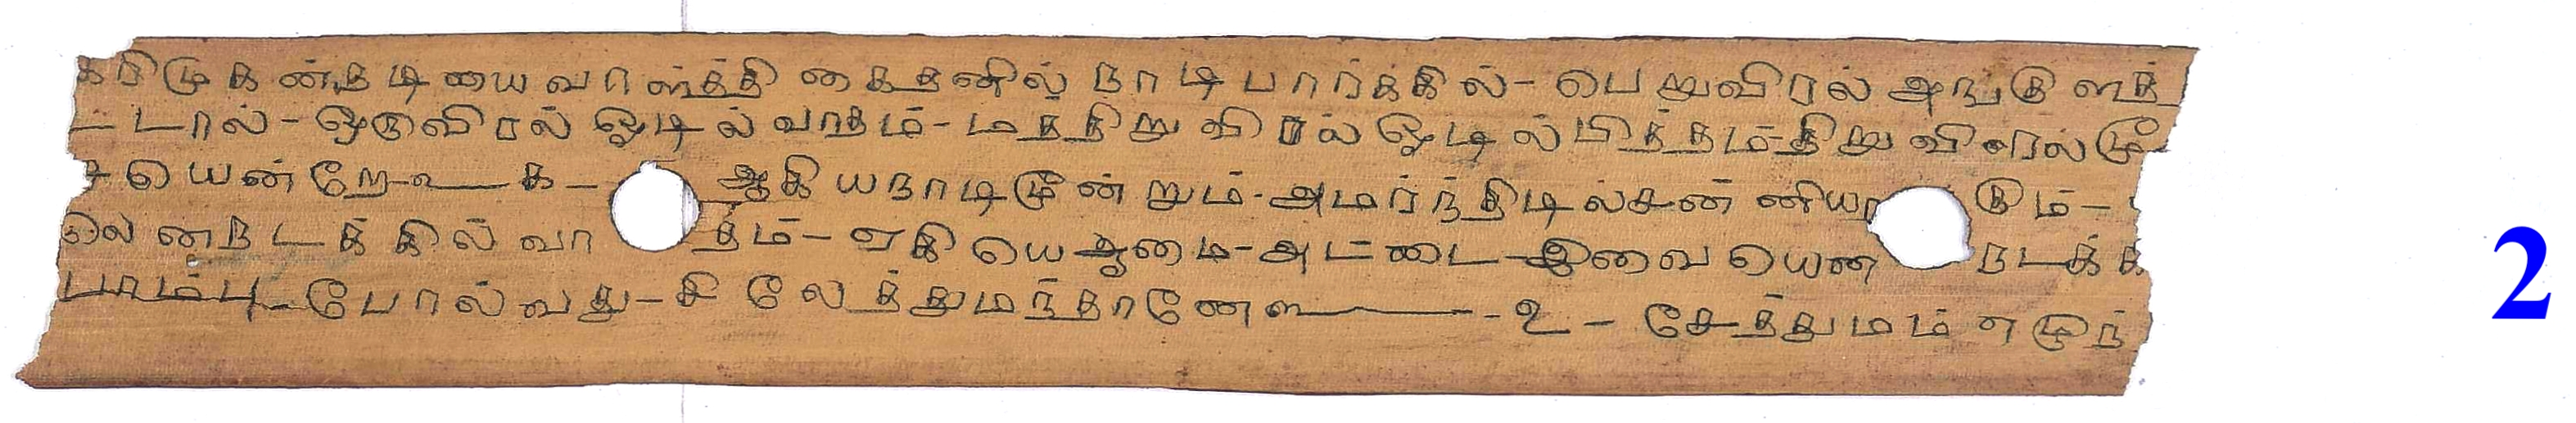 கரிமுகன்தடியை வாள்த்தி கைதனில் நாடி பார்க்கில் - பெறுவிரல் அங்குளத்
டால் - ஒருவிரல் ஓடில் வாதம் - மத்திறுவிரல் ஓடில் பித்தம் - திறுவிரல் மூ
யென்றே - க - ஆகியநாடி மூன்றும் - அமர்ந்திடில் சன்னியாகும் -
னநடக்கில் வாதம் - ஏகியெ ஆமை - அட்டை - இவையென நடக்க
பாம்பு - போல்வது - சிலேத்துமந்தாணே - உ - சேத்துமம் எழுந்
2